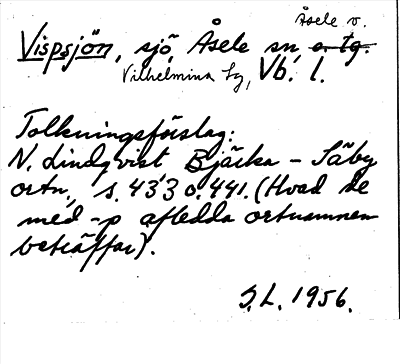 Åsele v.
Vispsjön, sjö, Åsele sn, o. tg.
Vilhelmina tg, Vb. l.
Tolkningsförslag:
N. Lindqvist Bjärka - Säby
ortn, s. 433 o. 441. (Hvad de
med -p afledda ortnamnen
beträffar).
S.L. 1956.